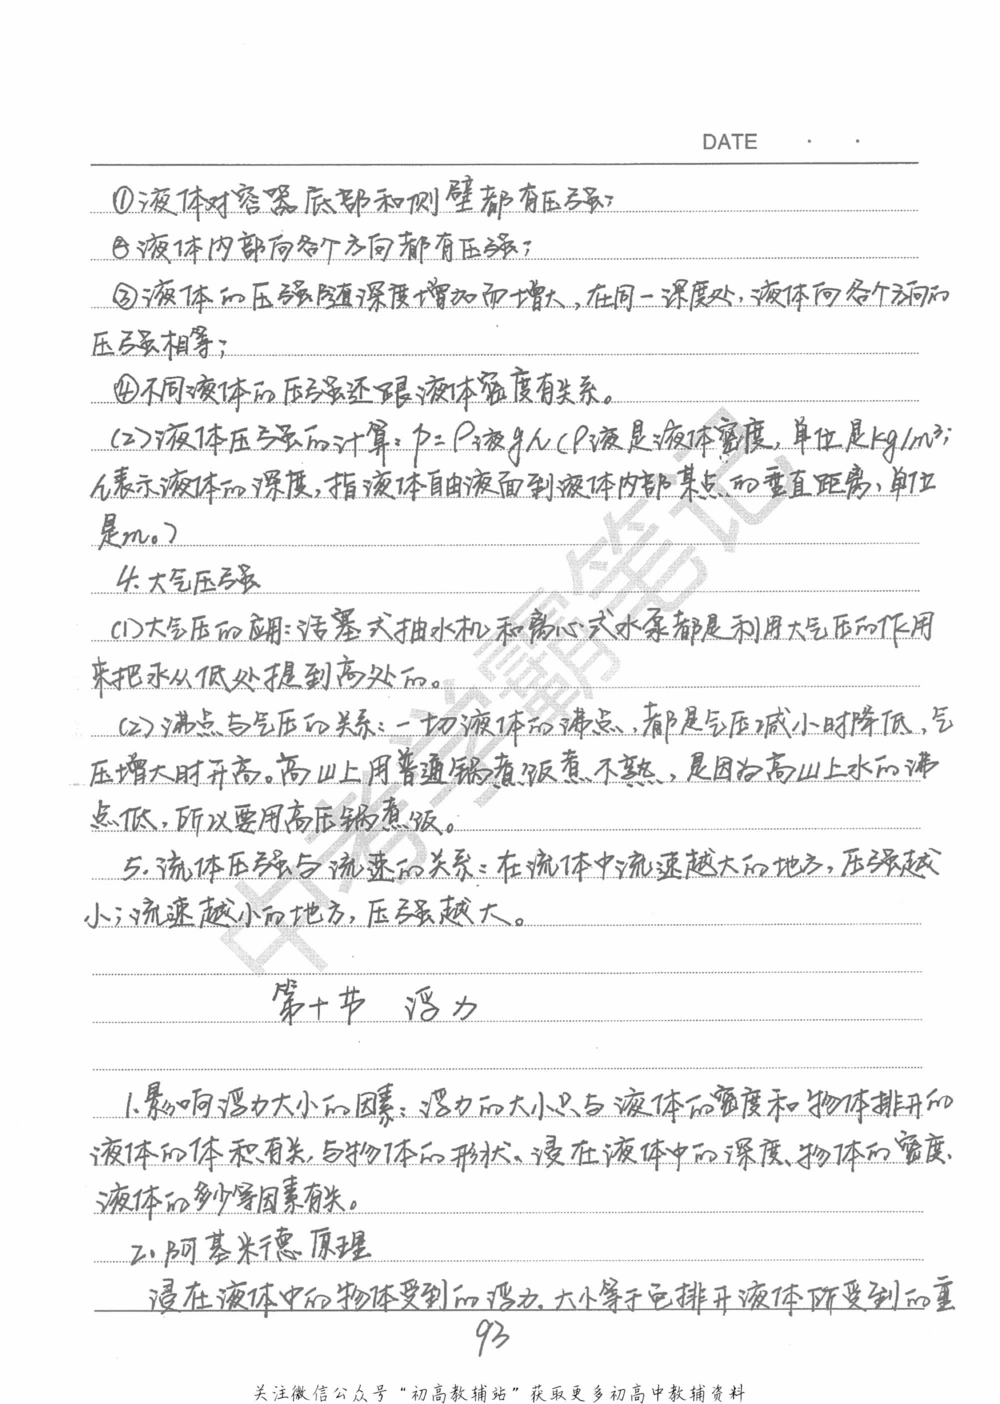 DATE · ·
①液体对容器底部和侧壁都有压强;
②液体内部向各个方向都有压强;
③液体的压强随深度增加而增大,在同一深度处,液体向各个方向的
压强相等;
④不同液体的压强还跟液体密度有关系。
(2)液体压强的计算:p=ρ液gh(ρ液是液体密度,单位是kg/m³;
h表示液体的深度,指液体自由液面到液体内部某点的垂直距离,单位
是m。)
4.大气压强
(1)大气压的应用:活塞式抽水机和离心式水泵都是利用大气压的作用
来把水从低处提到高处的。
(2)沸点与气压的关系:一切液体的沸点,都是气压减小时降低,气
压增大时升高。高山上用普通锅煮饭煮不熟,是因为高山上水的沸
点低,所以要用高压锅煮饭。
5.流体压强与流速的关系:在流体中流速越大的地方,压强越
小;流速越小的地方,压强越大。
第十节 浮力
1.影响浮力大小的因素:浮力的大小只与液体的密度和物体排开的
液体的体积有关,与物体的形状、浸在液体中的深度、物体的密度、
液体的多少等因素有失。
2.阿基米德原理
浸在液体中的物体受到的浮力,大小等于它排开液体所受到的重
93
关注微信公众号“初高教辅站”获取更多初高中教辅资料
中考学霸笔记